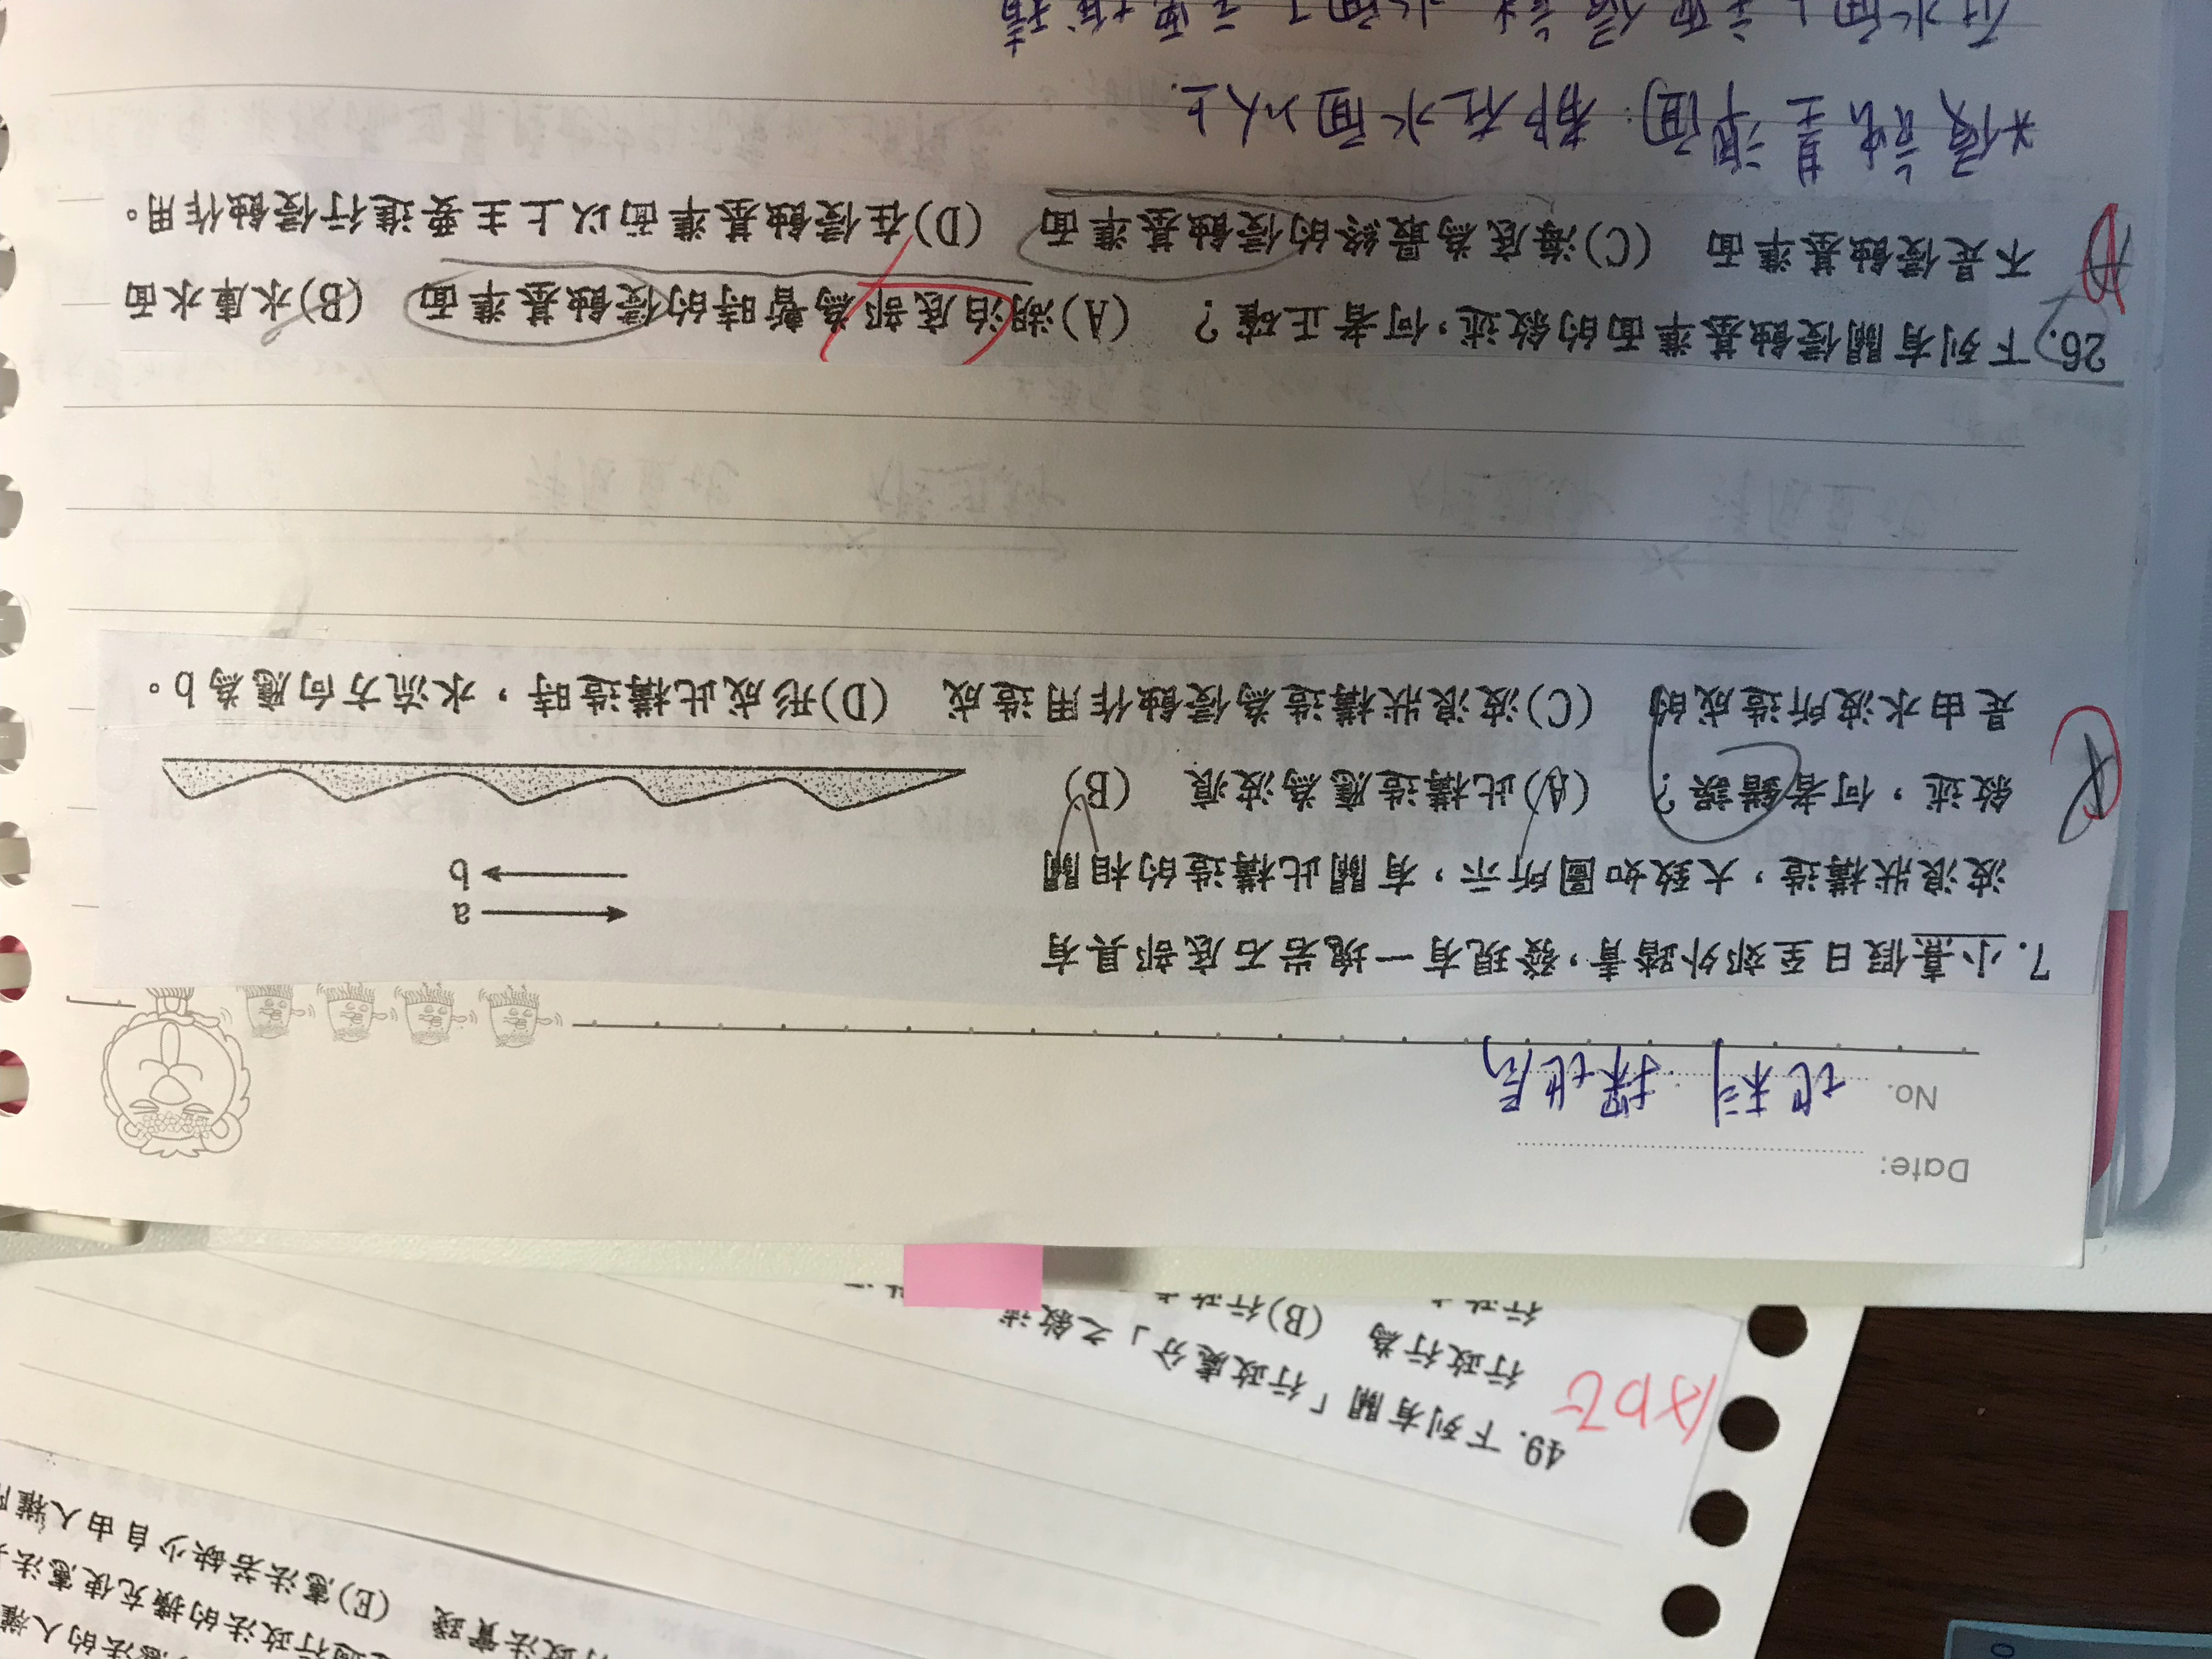 Date:
No. 地科 探地局
7. 小熹假日至郊外踏青，發現有一塊岩石底部具有
波浪狀構造，大致如圖所示，有關此構造的相關
敘述，何者錯誤？ (A)此構造應為波痕 (B)
是由水波所造成的 (C)波浪狀構造為侵蝕作用造成 (D)形成此構造時，水流方向應為b。
a
b
26. 下列有關侵蝕基準面的敘述，何者正確？ (A)湖泊底部為暫時的侵蝕基準面 (B)水庫水面
不是侵蝕基準面 (C)海底為最終的侵蝕基準面 (D)在侵蝕基準面以上主要進行侵蝕作用。
*侵蝕基準面：都在水面以上.
在水面上主要侵蝕 水面下主要堆積
49. 下列有關「行政處分」之敘述
行政行為 (B)行政
行政
ABC
(E)憲法若缺少自由人權
行政法的擴充使憲法
行政法實踐
憲法的人權